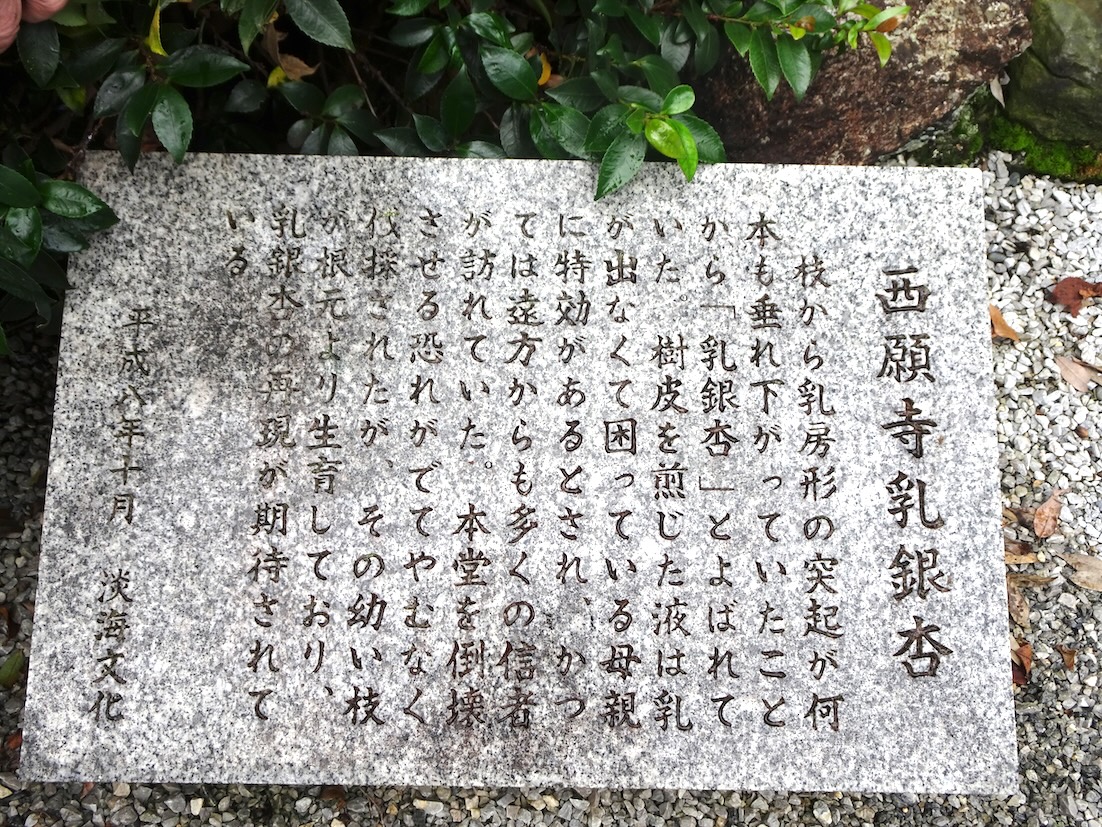 西願寺乳銀杏
枝から乳房形の突起が何
本も垂れ下がっていたこと
から「乳銀杏」とよばれて
いた。樹皮を煎じた液は乳
が出なくて困っている母親
に特効があるとされ、かつ
ては遠方からも多くの信者
が訪れていた。本堂を倒壊
させる恐れがでてやむなく
伐採されたが、その幼い枝
が根元より生育しており、
乳銀杏の再現が期待されて
いる
平成八年十月　淡海文化